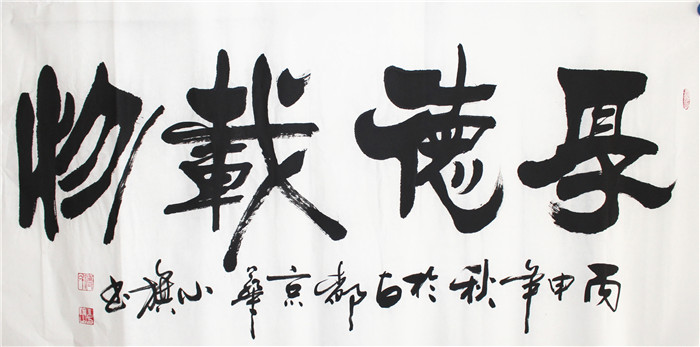 厚德載物
丙申年秋於古都京華小旗书